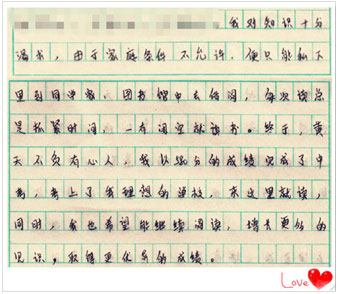 我对知识十分
渴求，由于家庭条件不允许，便只能私下
里到同学家、图书馆中去借阅，每次我总
是抓紧时间，一有词空就读书。终于，黄
天不负有心人，我以 分的成绩完成了中
考，考上了我理想的 校，来这里就读，
同时，我也希望能继续阅读，增长更多的
见识，取得更优异的成绩。
Love